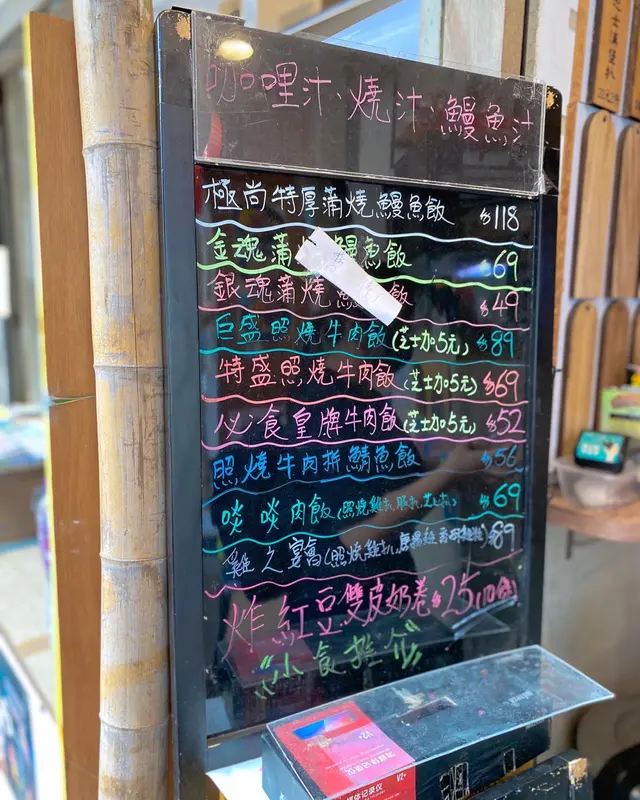 咖哩汁、燒汁、鰻魚汁
極尚特厚蒲燒鰻魚飯 $118
金魂蒲 鰻魚飯 $69
銀魂蒲燒鰻 飯 $49
巨盛照燒牛肉飯(芝士加5元) $89
特盛照燒牛肉飯(芝士加5元) $69
必食皇牌牛肉飯(芝士加5元) $52
照燒牛肉拼鯖魚飯 $56
啖啖肉飯(照燒雞扒、豚扒、芝士 ) $69
雞之宴會(照燒雞扒、唐揚雞 ) $89
炸紅豆雙皮奶卷 $25
小食推介
V2+
V2+